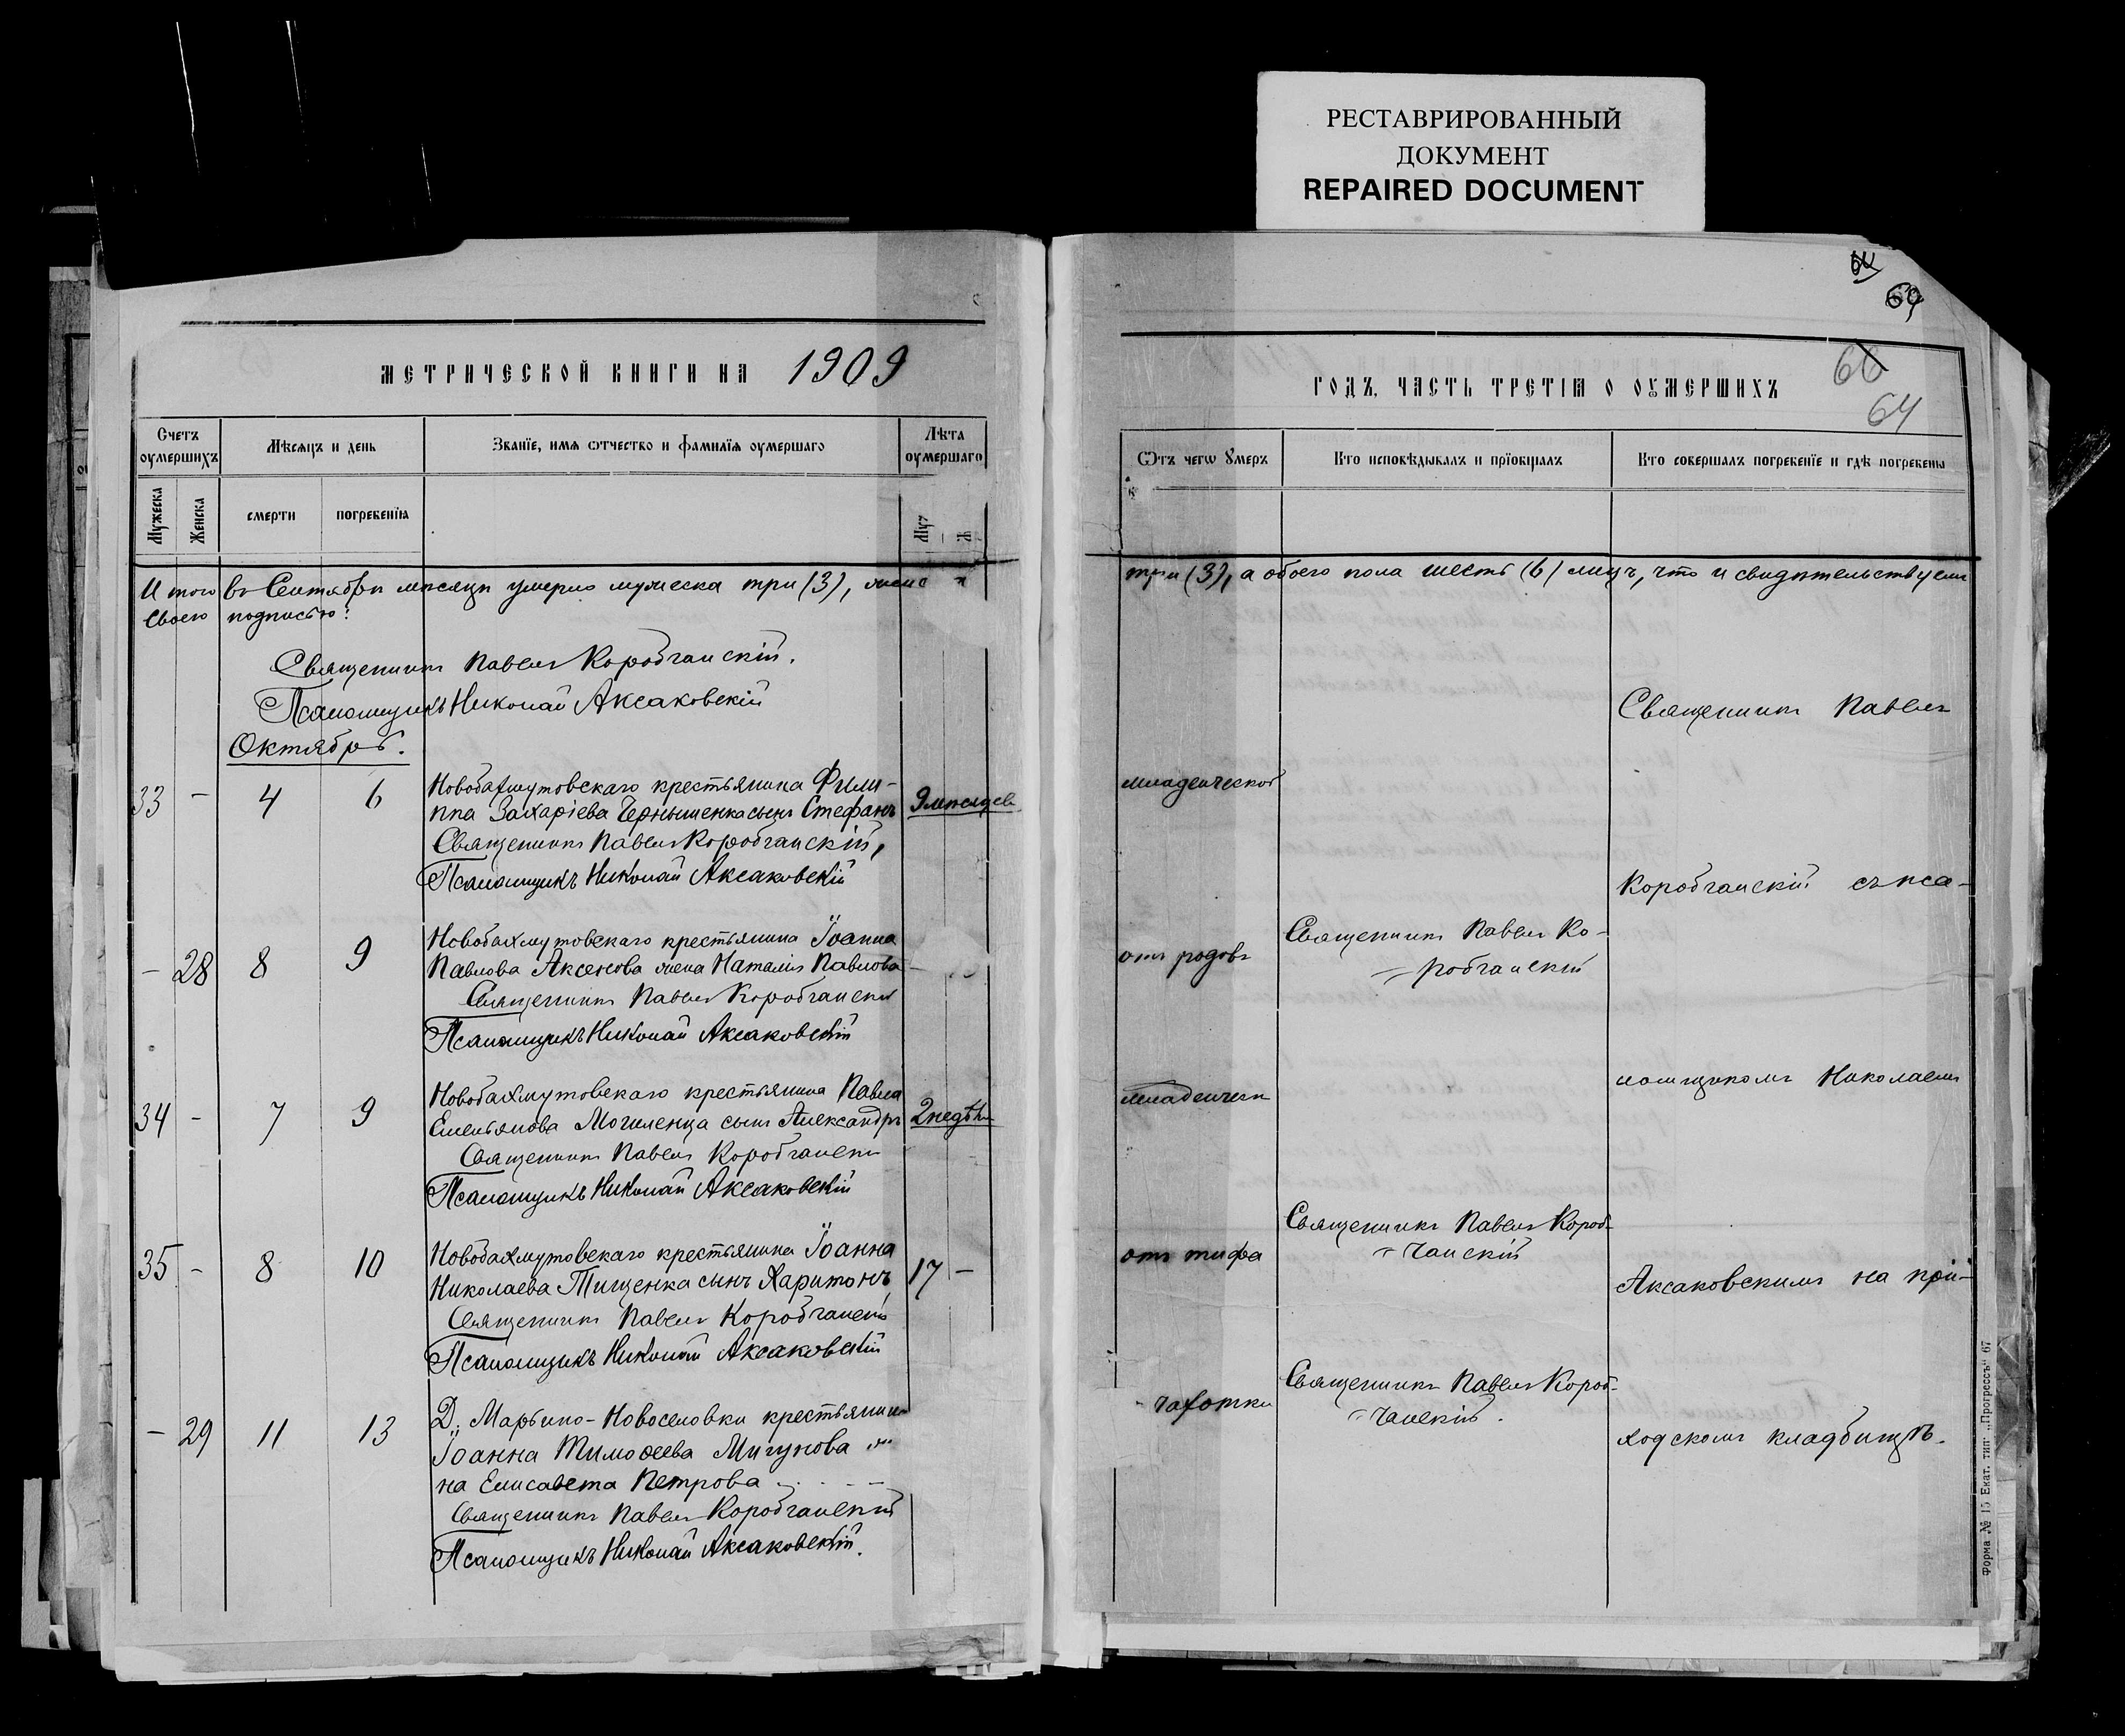 РЕСТАВРИРОВАННЫЙ
ДОКУМЕНТ
REPAIRED DOCUMENT
МЕТРИЧЕСКОЙ КНИГИ НА 1909
Счетъ оумершихъ
Мѣсяцъ и день
Званїе, имѧ ѡтчество и фамилїѧ оумершаго
Лѣта оумершаго
Мужеска
Женска
смерти
погребенїѧ
Муж
Итого въ Сентябрѣ мѣсяцѣ умерло мужеска три (3),
своею подписью:
Священникъ Павелъ Коробчанскій.
Псаломщикъ Николай Аксаковскій
Октябрь.
33 - 4 6 Новобахмутовскаго крестьянина Фили-
ппа Захаріева Чернышенка сынъ Стефанъ 9 мѣсяцев
Священникъ Павелъ Коробчанскій,
Псаломщикъ Николай Аксаковскій
- 28 8 9 Новобахмутовскаго крестьянина Іоанна
Павлова Аксенова жена Наталія Павлова -
Священникъ Павелъ Коробчанскій
Псаломщикъ Николай Аксаковскій
34 - 7 9 Новобахмутовскаго крестьянина Павла
Емельянова Могиленца сынъ Александръ 2 недѣли
Священникъ Павелъ Коробчанскі
Псаломщикъ Николай Аксаковскій
35 - 8 10 Новобахмутовскаго крестьянина Іоанна
Николаева Тищенка сынъ Харитонъ 17 -
Священникъ Павелъ Коробчанскі
Псаломщикъ Николай Аксаковскій
- 29 11 13 Д. Марьино-Новоселовки крестьянин
Іоанна Тимоѳеева Мигунова же
на Елисавета Петрова
Священникъ Павелъ Коробчанскій
Псаломщикъ Николай Аксаковскій.
64
60
64
ГОДЪ, ЧАСТЬ ТРЕТІѦ О ОУМЕРШИХЪ
Ѿтъ чегѡ ꙋмеръ
Кто исповѣдывалъ и прїобщалъ
Кто совершалъ погребенїе и гдѣ погребены
три (3), а обоего пола шесть (6) лицъ, что и свидѣтельствуем
Священникъ Павелъ
младенческой
Коробчанскій съ пса-
отъ родовъ
Священникъ Павелъ Ко-
робчанскій
ломщикомъ Николаемъ
младенческ
отъ тифа
Священникъ Павелъ Короб-
чанскій
Аксаковскимъ на при-
чахотки
Священникъ Павелъ Короб-
чанскій.
ходскомъ кладбищѣ.
Форма № 15 Екат. тип. „Прогрессъ“ 67